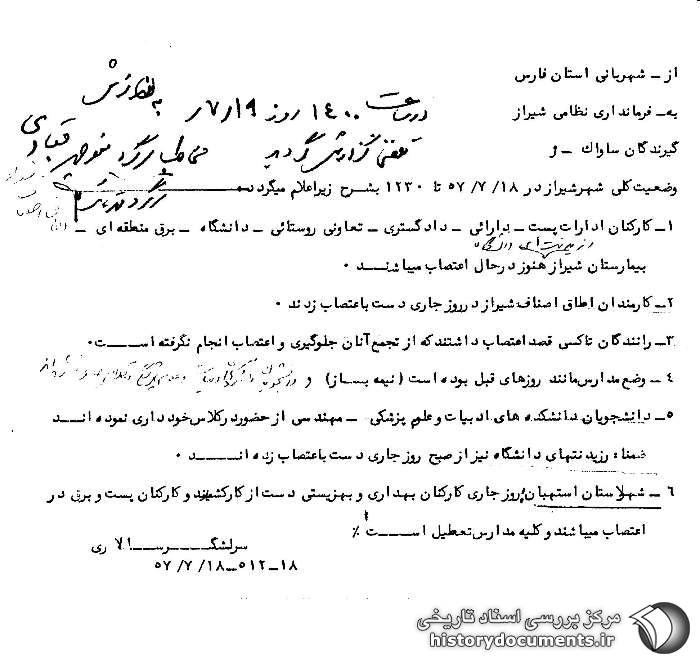 از ـ شهربانی استان فارس
به ـ فرمانداری نظامی شیراز
گیرندگان ساواك ـ ژ
در ساعت ۱۴۰۰ روز ۷/۱۹
تلفنی گزارش گردید
وضعیت کلی شهر شیراز در ۵۷/۷/۱۸ تا ۱۲۳۰ بشرح زیر اعلام میگردد
۱ـ کارکنان ادارات پست ـ دارائی ـ دادگستری ـ تعاونی روستائی ـ دانشگاه ـ برق منطقه ای ـ
بیمارستان شیراز هنوز در حال اعتصاب میباشند ۰
۲ـ کارمندان اطاق اصناف شیراز در روز جاری دست باعتصاب زدند ۰
۳ـ رانندگان تاکسی قصد اعتصاب داشتند که از تجمع آنان جلوگیری و اعتصاب انجام نگرفته است۰
۴ ـ وضع مدارس مانند روزهای قبل بوده است (نیمه بساز) و
۵ـ دانشجویان دانشکده های ادبیات و علوم پزشکی ـ مهندسی از حضور در کلاس خود داری نموده اند
ضمنا" رزیدنتهای دانشگاه نیز از صبح روز جاری دست باعتصاب زده اند ۰
۶ ـ شهرستان استهبان روز جاری کارکنان بهداری و بهزیستی دست از کار کشیدند و کارکنان پست و برق در
اعتصاب میباشند و کلیه مدارس تعطیل است ٪
سرلشگر
۱۸ـ۵۱۲ـ۵۷/۷/۱۸
مرکز بررسی اسناد تاریخی
historydocuments.ir